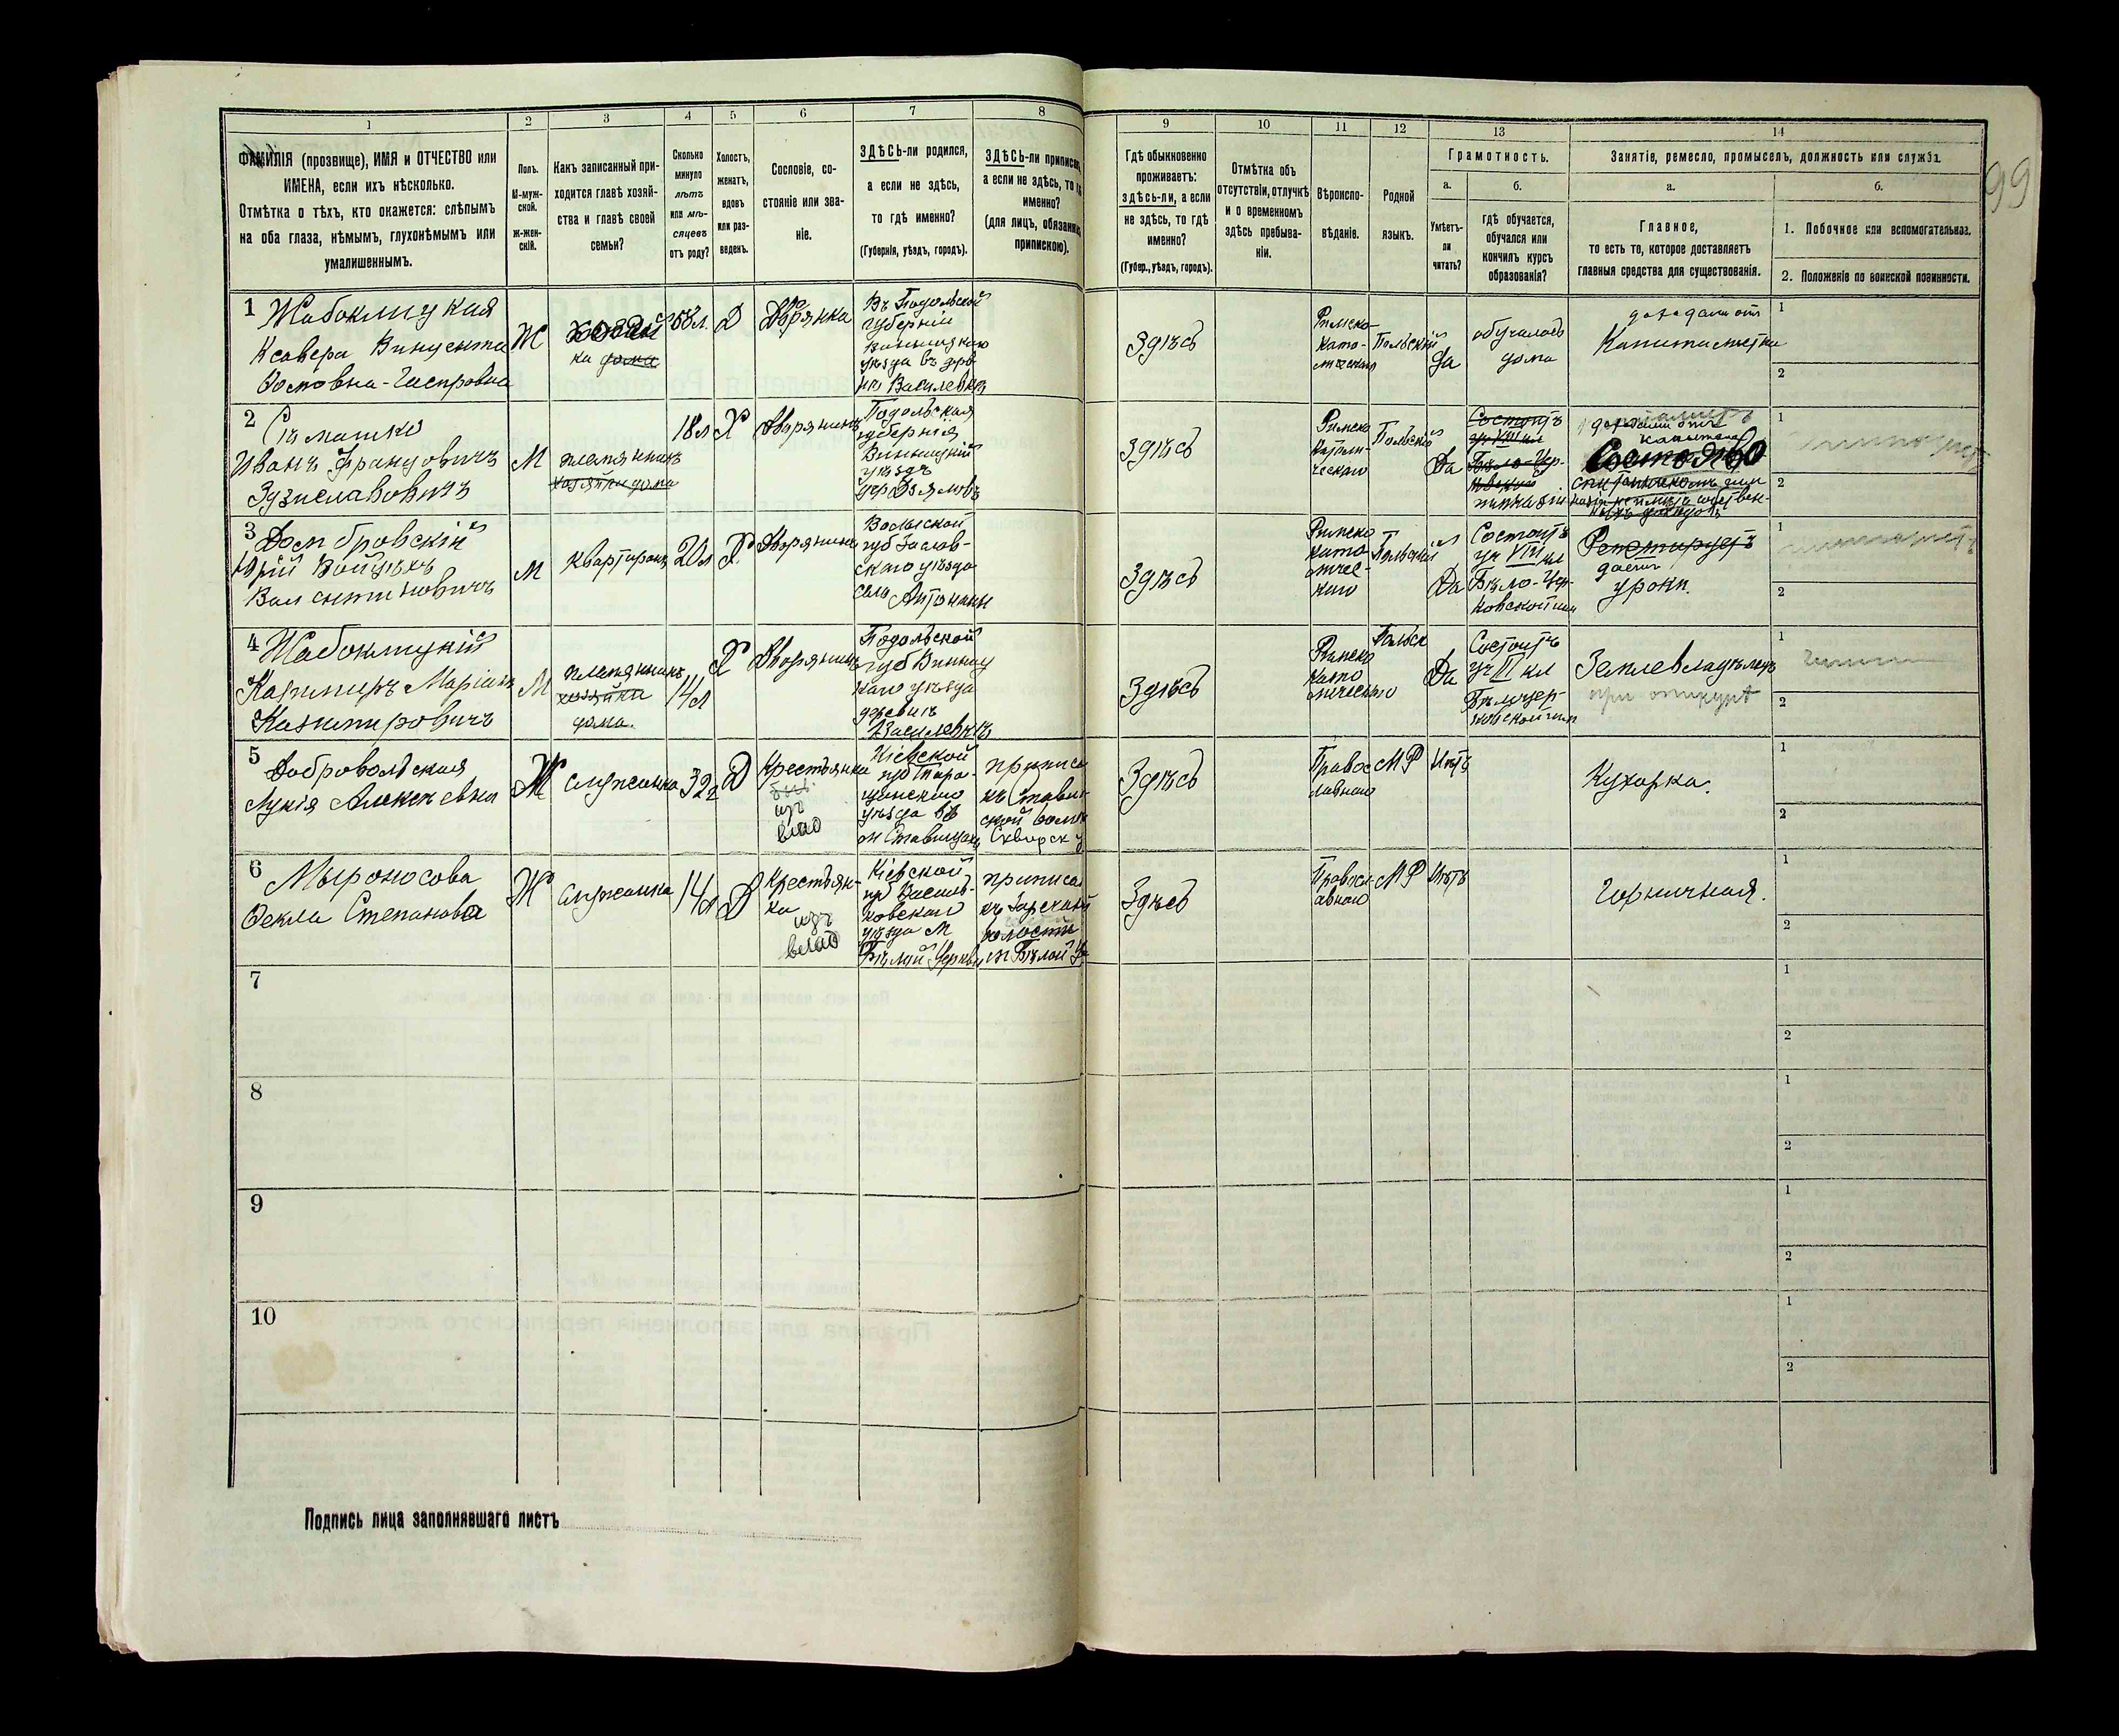 1
2
3
4
5
6
7
8
9
10
11
12
13
14
99
ФАМИЛІЯ (прозвище), ИМЯ и ОТЧЕСТВО или
ИМЕНА, если ихъ нѣсколько.
Отмѣтка о тѣхъ, кто окажется: слѣпымъ
на оба глаза, нѣмымъ, глухонѣмымъ или
умалишеннымъ.
Полъ.
М-муж-
ской.
Ж-жен-
скій.
Какъ записанный при-
ходится главѣ хозяй-
ства и главѣ своей
семьи?
Сколько
минуло
лѣтъ
или мѣ-
сяцевъ
отъ роду?
Холостъ,
женатъ,
вдовъ
или раз-
веденъ.
Сословіе, со-
стояніе или зва-
ніе.
ЗДѢСЬ-ли родился,
а если не здѣсь,
то гдѣ именно?
(Губернія, уѣздъ, городъ).
ЗДѢСЬ-ли приписанъ,
а если не здѣсь, то гдѣ
именно?
(для лицъ, обязанныхъ
припискою).
Гдѣ обыкновенно
проживаетъ:
здѣсь-ли, а если
не здѣсь, то гдѣ
именно?
(Губер., уѣздъ, городъ).
Отмѣтка объ
отсутствіи, отлучкѣ
и о временномъ
здѣсь пребыва-
ніи.
Вѣроиспо-
вѣданіе.
Родной
языкъ.
Грамотность.
а.
Умѣетъ-
ли
читать?
б.
гдѣ обучается,
обучался или
кончилъ курсъ
образованія?
Занятіе, ремесло, промыселъ, должность или служба.
а.
Главное,
то есть то, которое доставляетъ
главныя средства для существованія.
б.
1. Побочное или вспомогательное.
2. Положеніе по воинской повинности.
1 Жабоклицкая
Ксавера Винцента
Ж
58 л.
Д
Дворянка
Въ Подольской
губерніи
Винницкаго
уѣзда въ дерев
Здѣсь
Римско-
като-
Польскій
Да
обучалась
дома
1
2
2 Сѣмашко
Иванъ Францовичъ
Здзиславовичъ
М
племянникъ
хозяйки дома
18 л
Х
Дворянинъ
Подольская
губернія
Винницкій
уѣздъ
Здѣсь
Римско
Католи-
ческаго
Польскій
Да
Состоитъ
уч VIII кл
Бѣло-Цер-
1
2
3 Домбровскій
Юрій Войцѣхъ
Валентиновичъ
М
квартирант
20 л
Х
Дворянинъ
Волынской
губ Заслав-
скаго уѣзда
село Антонины
Здѣсь
Римско
като
личес-
каго
Польскій
Да
Состоитъ
уч VIII кл
Бѣло-Цер-
ковской гим
Репетируетъ
даетъ
уроки.
1
2
4 Жабоклицкій
Казимиръ Маріанъ
Казимировичъ
М
племянникъ
хозяйки
дома.
14 л
Х
Дворянинъ
Подольской
губ Винниц
каго уѣзда
Здѣсь
Римско
като
лическаго
Польск
Да
Состоитъ
Бѣлоцер-
ковской гим
Землевладѣлецъ
при опекунѣ
1
2
5 Добровольская
Лукія Алексѣевна
Ж
служанка
32 г
Д
Крестьянка
изъ
влад
Кіевской
губ Тара-
щанскаго
уѣзда въ
м Ставищахъ
приписа
Сквирск у
Здѣсь
Правос
лавнаго
МР
Нѣтъ
Кухарка.
1
2
6 Мыроносова
Фекла Степановна
Ж
служанка
14 л
Д
Крестьян-
ка
изъ
влад
Кіевской
губ Василь-
ковскаго
уѣзда м
Бѣлой Церкви
приписа
волости
м Бѣлой Це
Здѣсь
Правосл
авнаго
МР
Нѣтъ
Горничная.
1
2
7
1
2
8
1
2
9
1
2
10
1
2
Подпись лица заполнявшаго листъ